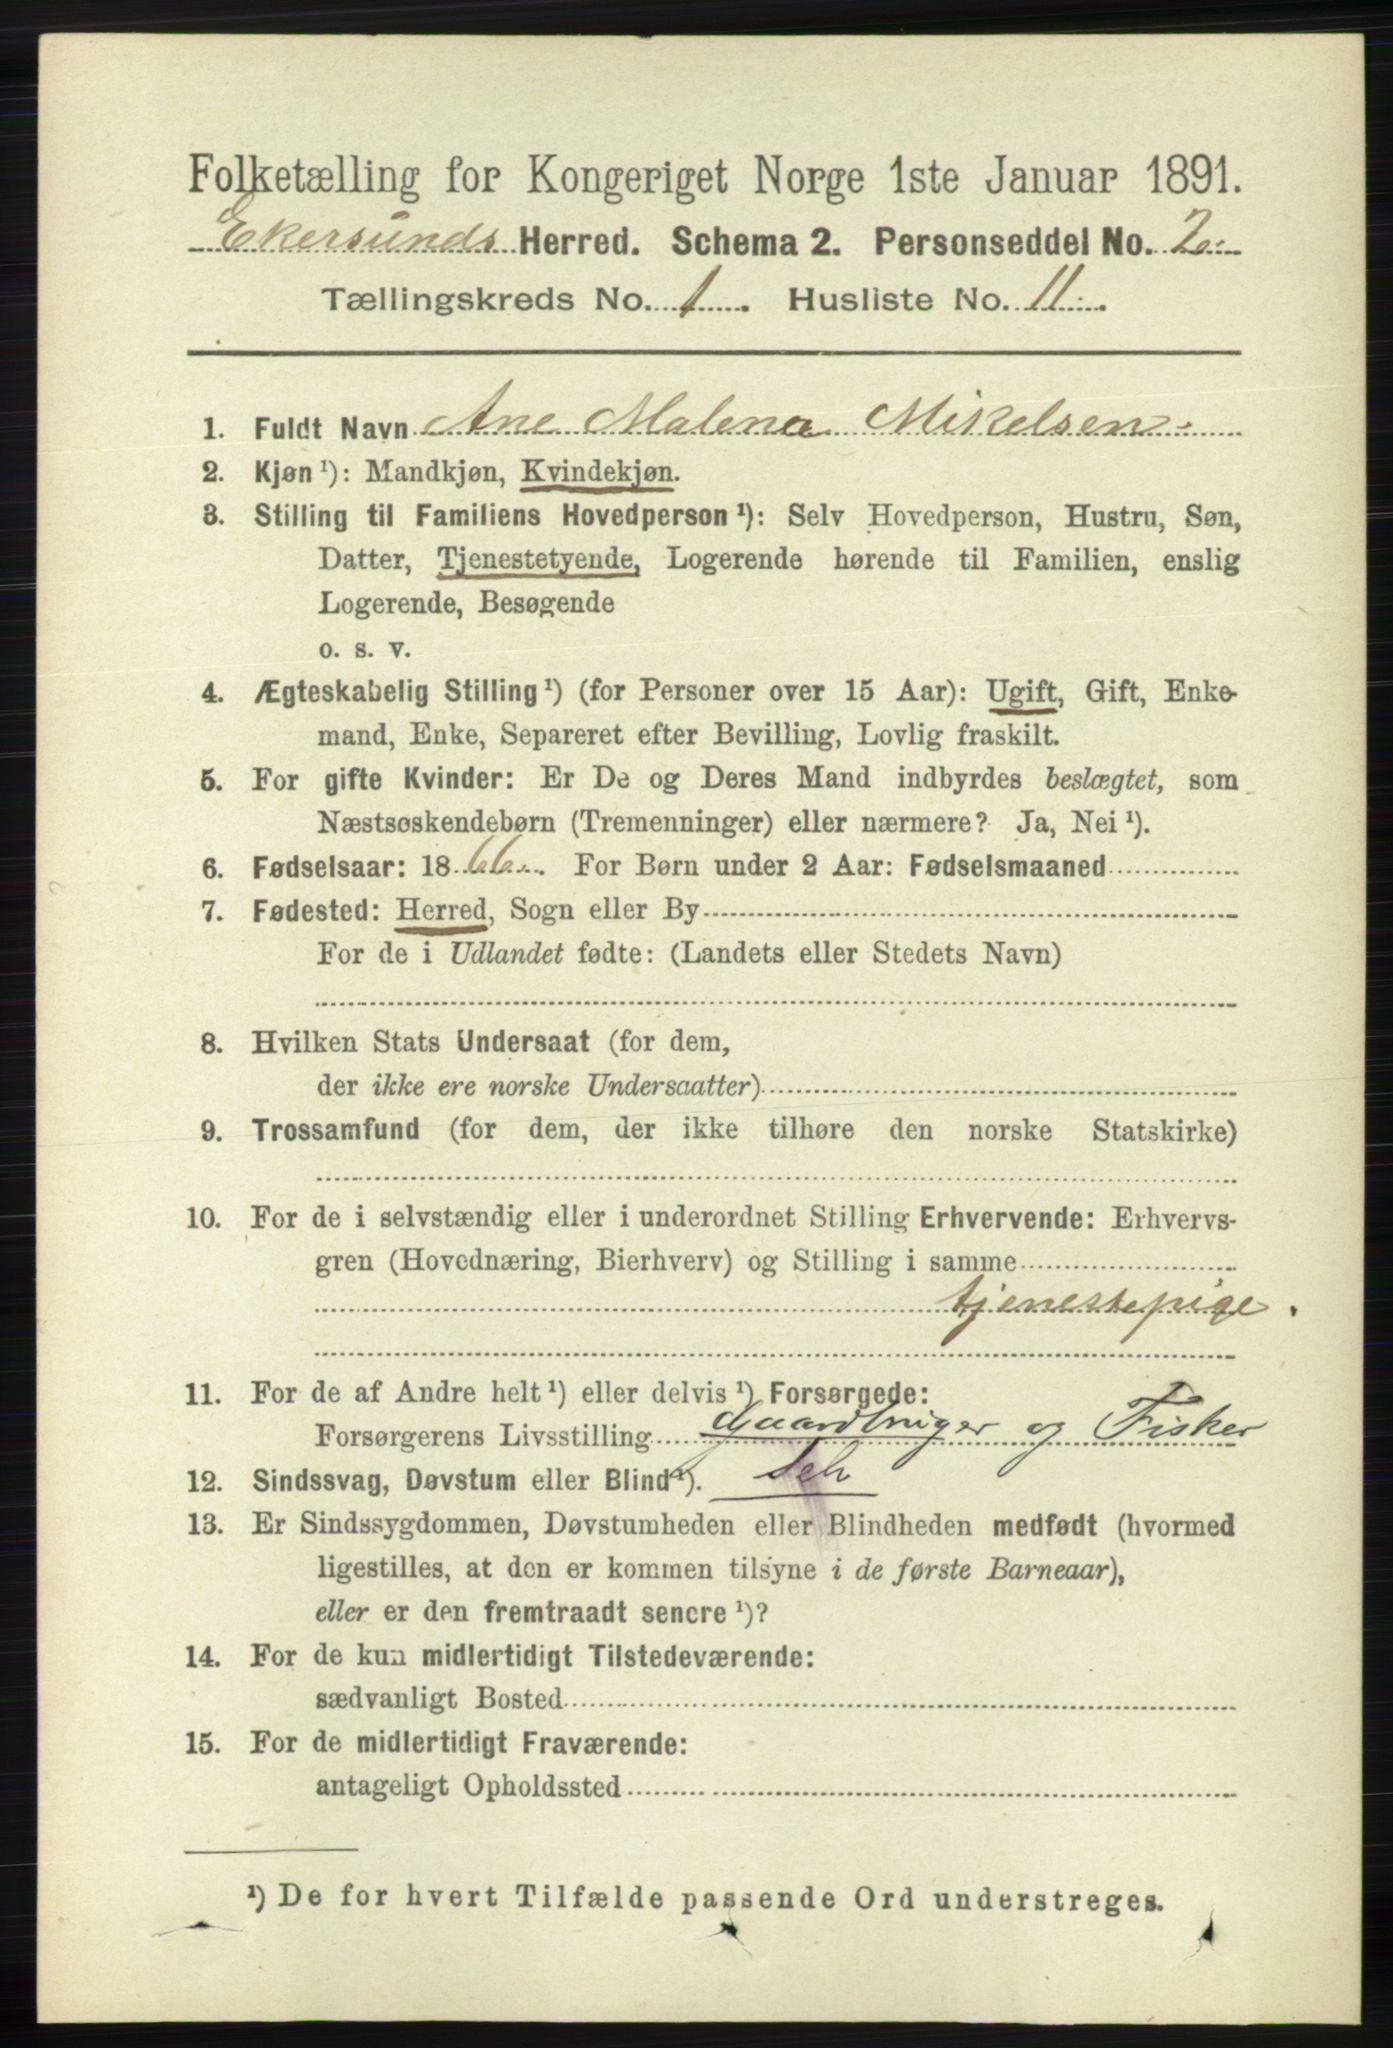 Folketælling for Kongeriget Norge 1ste Januar 1891.
Ekersunds Herred. Schema 2. Personseddel No. 2.
Tællingskreds No. 1. Husliste No. 11.
1. Fuldt Navn Ane Malena Mikelsen.
2. Kjøn ¹): Mandkjøn, Kvindekjøn.
3. Stilling til Familiens Hovedperson ¹): Selv Hovedperson, Hustru, Søn,
Datter, Tjenestetyende, Logerende hørende til Familien, enslig
Logerende, Besøgende
o. s. v.
4. Ægteskabelig Stilling ¹) (for Personer over 15 Aar): Ugift, Gift, Enke-
mand, Enke, Separeret efter Bevilling, Lovlig fraskilt.
5. For gifte Kvinder: Er De og Deres Mand indbyrdes beslægtet, som
Næstsøskendebørn (Tremenninger) eller nærmere? Ja, Nei ¹).
6. Fødselsaar: 1866. For Børn under 2 Aar: Fødselsmaaned
7. Fødested: Herred, Sogn eller By
For de i Udlandet fødte: (Landets eller Stedets Navn)
8. Hvilken Stats Undersaat (for dem,
der ikke ere norske Undersaatter)
9. Trossamfund (for dem, der ikke tilhøre den norske Statskirke)
10. For de i selvstændig eller i underordnet Stilling Erhvervende: Erhvervs-
gren (Hovednæring, Bierhverv) og Stilling i samme
tjenestepige.
11. For de af Andre helt ¹) eller delvis ¹) Forsørgede:
Forsørgerens Livsstilling Gaardbruger og Fisker
12. Sindssvag, Døvstum eller Blind ¹).
13. Er Sindssygdommen, Døvstumheden eller Blindheden medfødt (hvormed
ligestilles, at den er kommen tilsyne i de første Barneaar),
eller er den fremtraadt senere ¹)?
14. For de kun midlertidigt Tilstedeværende:
sædvanligt Bosted
15. For de midlertidigt Fraværende:
antageligt Opholdssted
¹) De for hvert Tilfælde passende Ord understreges.